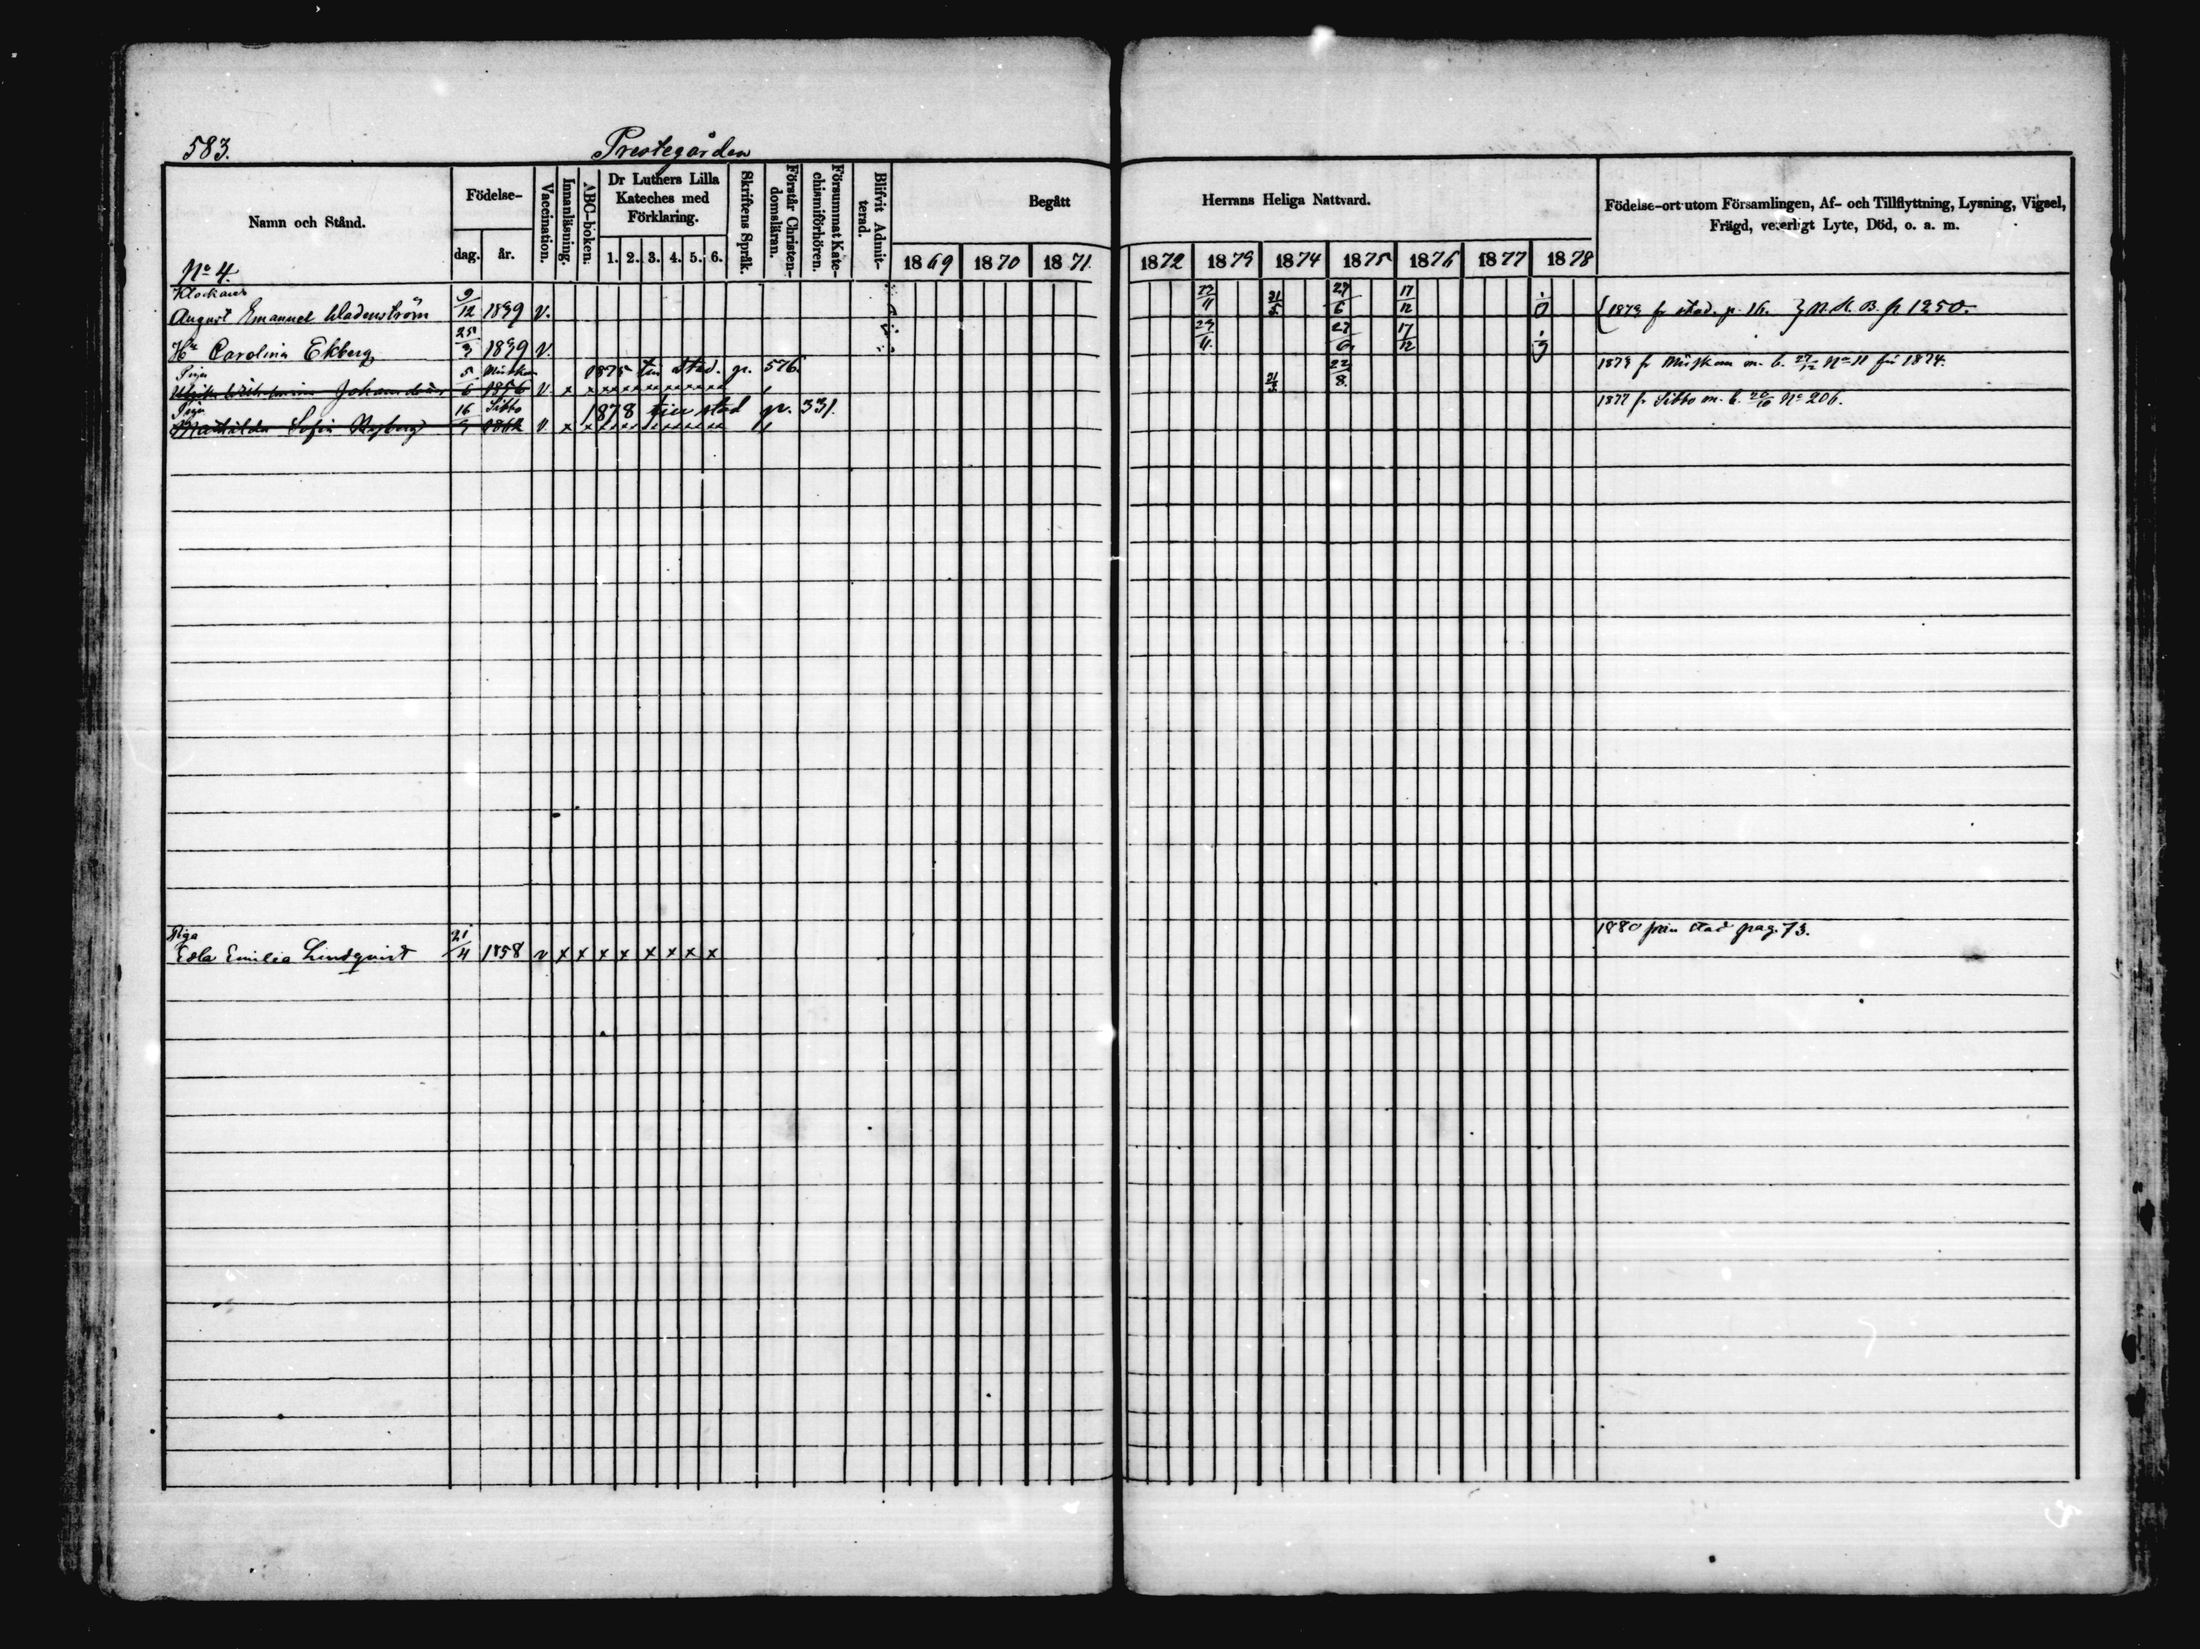 583. Prestegården
Namn och Stånd. Födelse- dag. år. Vaccination. Innanläsning. ABC-boken. Dr Luthers Lilla Kateches med Förklaring. 1. 2. 3. 4. 5. 6. Skriftens Språk. Förstår Christendomsläran. Försummat Katechismiförhören. Blifvit Admitterad. Begått Herrans Heliga Nattvard. Födelse-ort utom Församlingen, Af- och Tillflyttning, Lysning, Vigsel, Frägd, vederligt Lyte, Död, o. a. m.
1869 1870 1871 1872 1873 1874 1875 1876 1877 1878
No 4.
Klockaren
August Emanuel Wadenström 9/12 1839 v. 23/11 31/5 27/6 17/12 1873 fr stad. p. 16. N. K. B. p 1250.
Hu Carolina Ekberg 25/3 1839 v. 23/11 27/6 17/12
Piga 1875 till stad. p. 576. 1873 fr Mörskom m. b. 27/12 No 11 för 1874.
Johansdotter 5/6 1856 v. x x x x x x x x x x x 31/5 22/8.
Piga Sibbo 1878 till stad p. 331. 1877 fr Sibbo m. b. 20/10 No 206.
Mathilda Sofia Nyberg 16/9 1862 v x x x x x x x x x x x
Piga 1880 från stad pag. 73.
Edla Emilia Lindqvist 21/4 1858 v x x x x x x x x